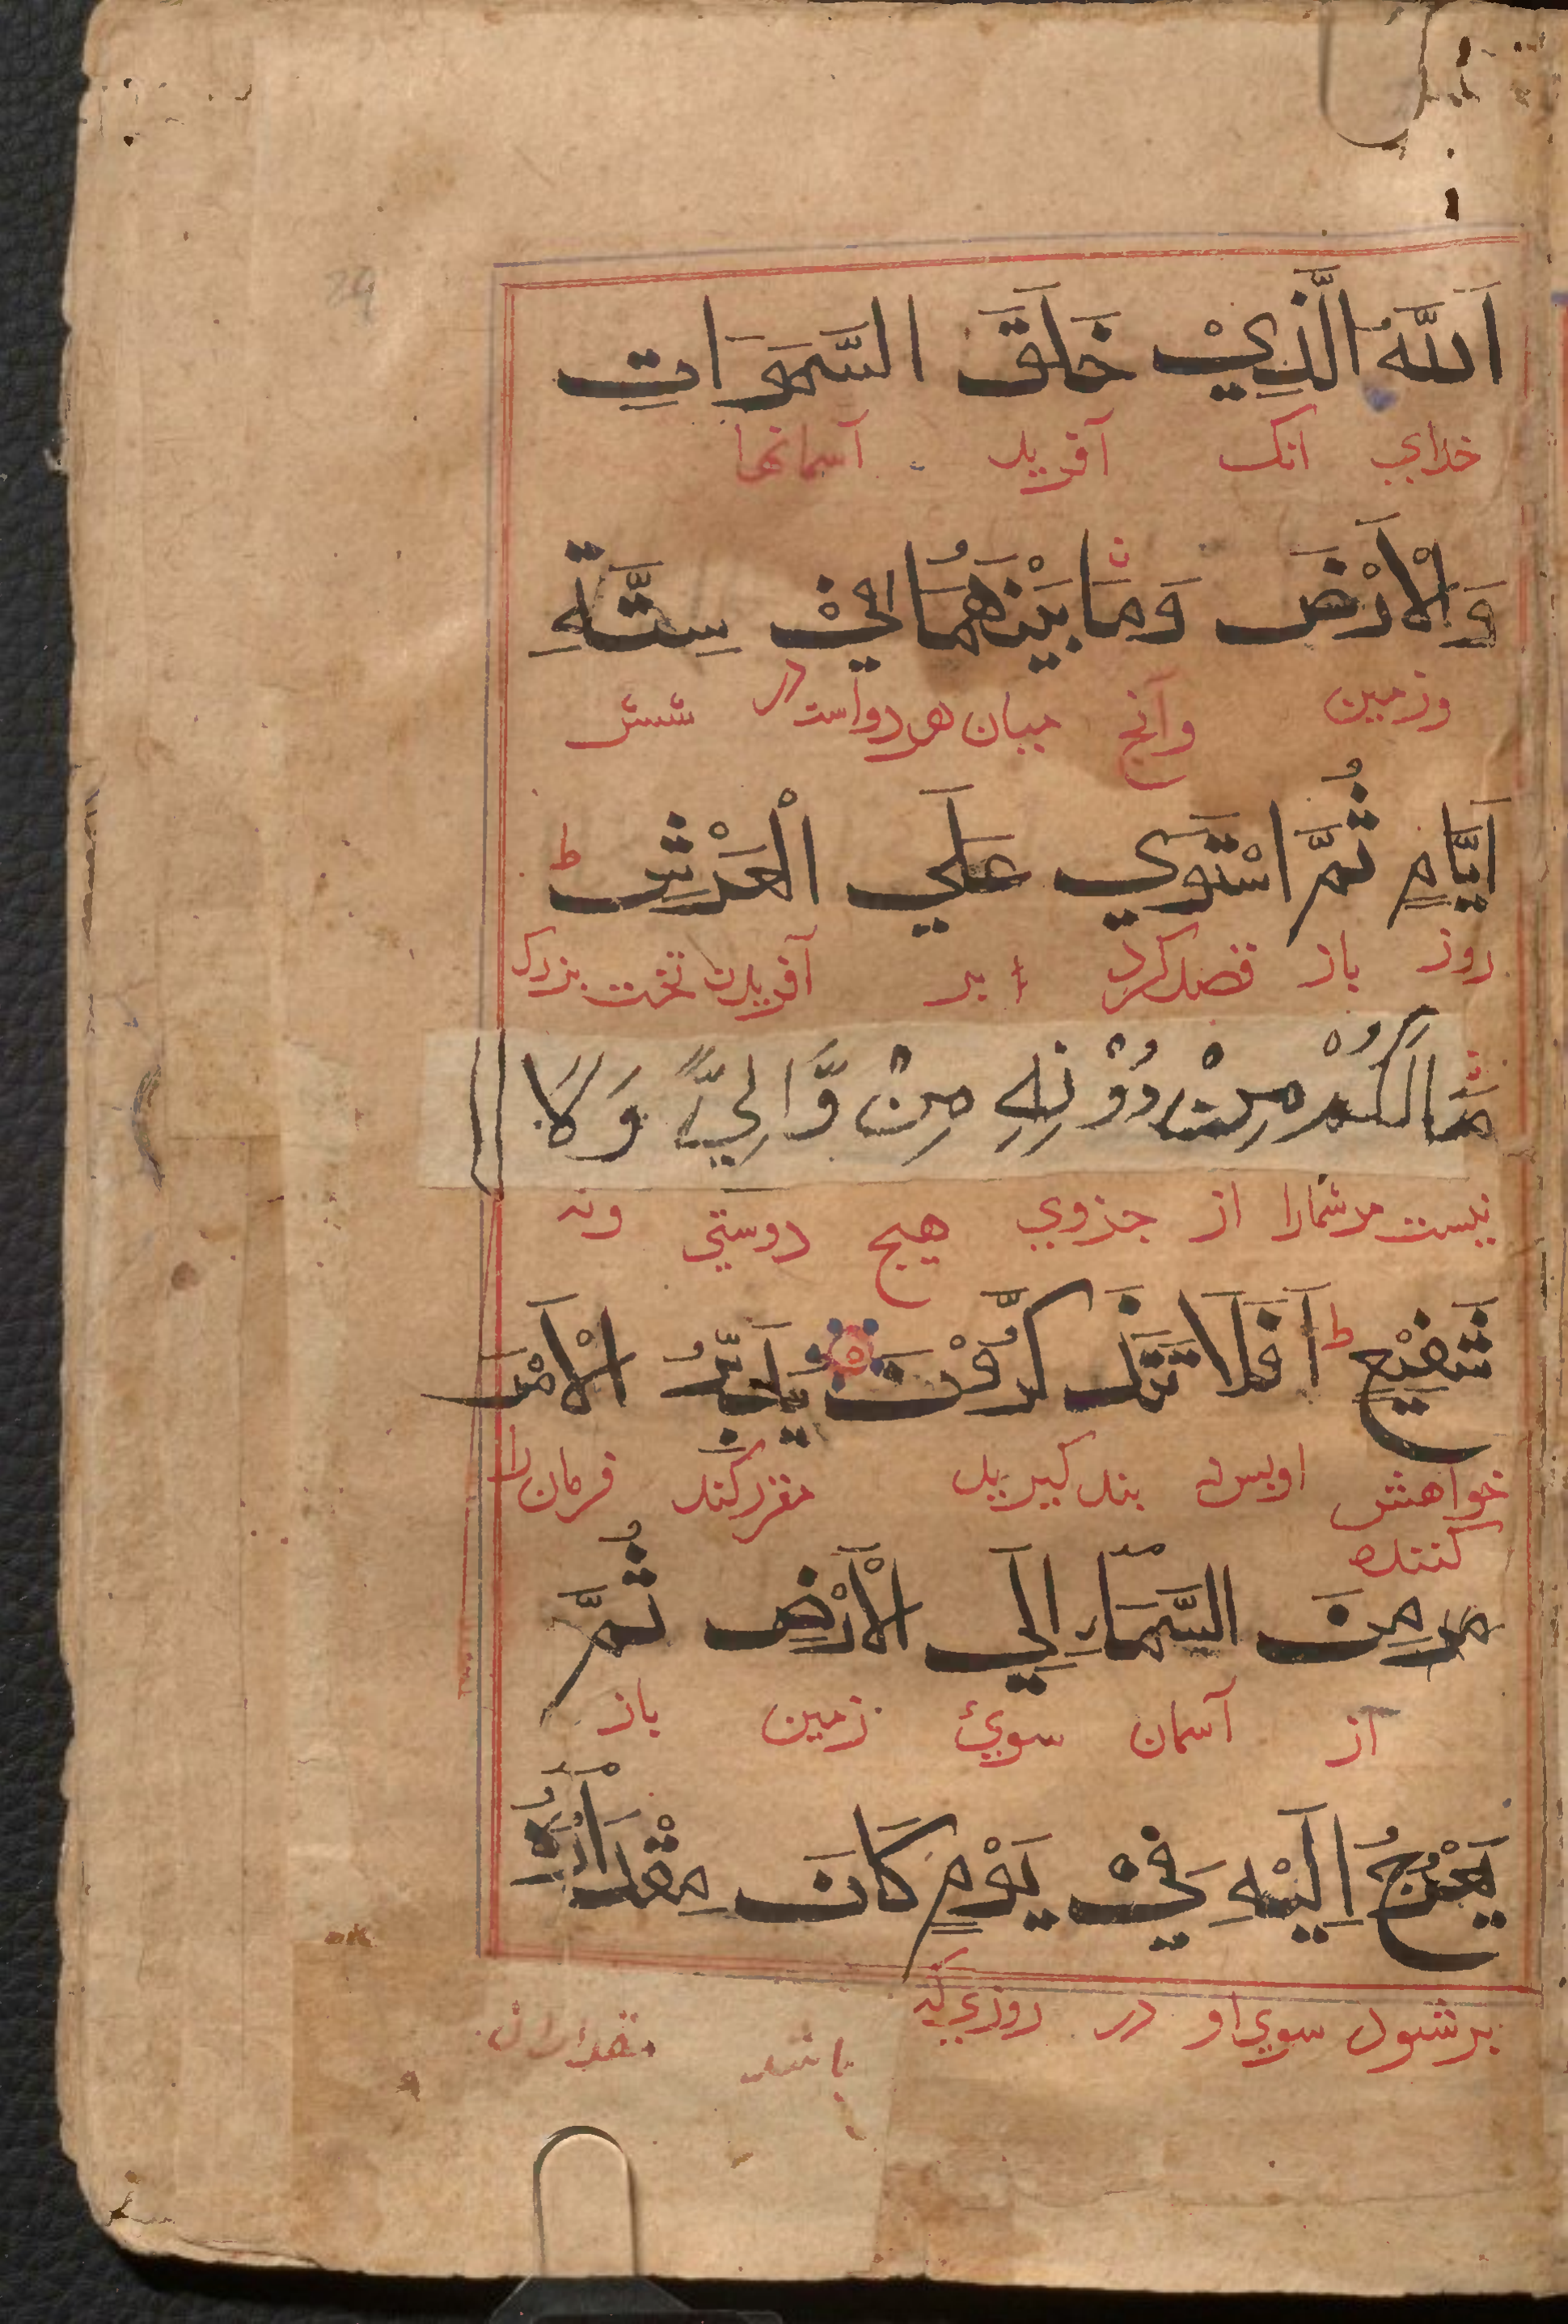 اَللّٰهُ الَّذِيْ خَلَقَ السَّمَوَاتِ
خدای انک آفرید آسمانها
وَالْاَرْضَ وَمَا بَيْنَهُمَا فِيْ سِتَّةِ
وزمین وآنچ میان هر دو است در شش
اَيَّامٍ ثُمَّ اسْتَوَي عَلَي الْعَرْشِ ط
روز باز قصد کرد بر آفریدن تخت بزرک
مَا لَكُمْ مِنْ دُوْنِهِ مِنْ وَّالِيٍّ وَلَا
نیست مر شمارا از جزوی هیچ دوستی ونه
شَفِيْعٍ ط اَفَلَا تَتَذَكَّرُوْنَ يُدَبِّرُ الْاَمْرَ
خواهش کننده اوپس نه پند کیرید کند فرمان را
مِنَ السَّمَآءِ اِلَي الْاَرْضِ ثُمَّ
از آسمان سوئ زمین باز
يَعْرُجُ اِلَيْهِ فِيْ يَوْمٍ كَانَ مِقْدَارُهُٓ
برشود سوی او در روزی که باشد مقدار آن